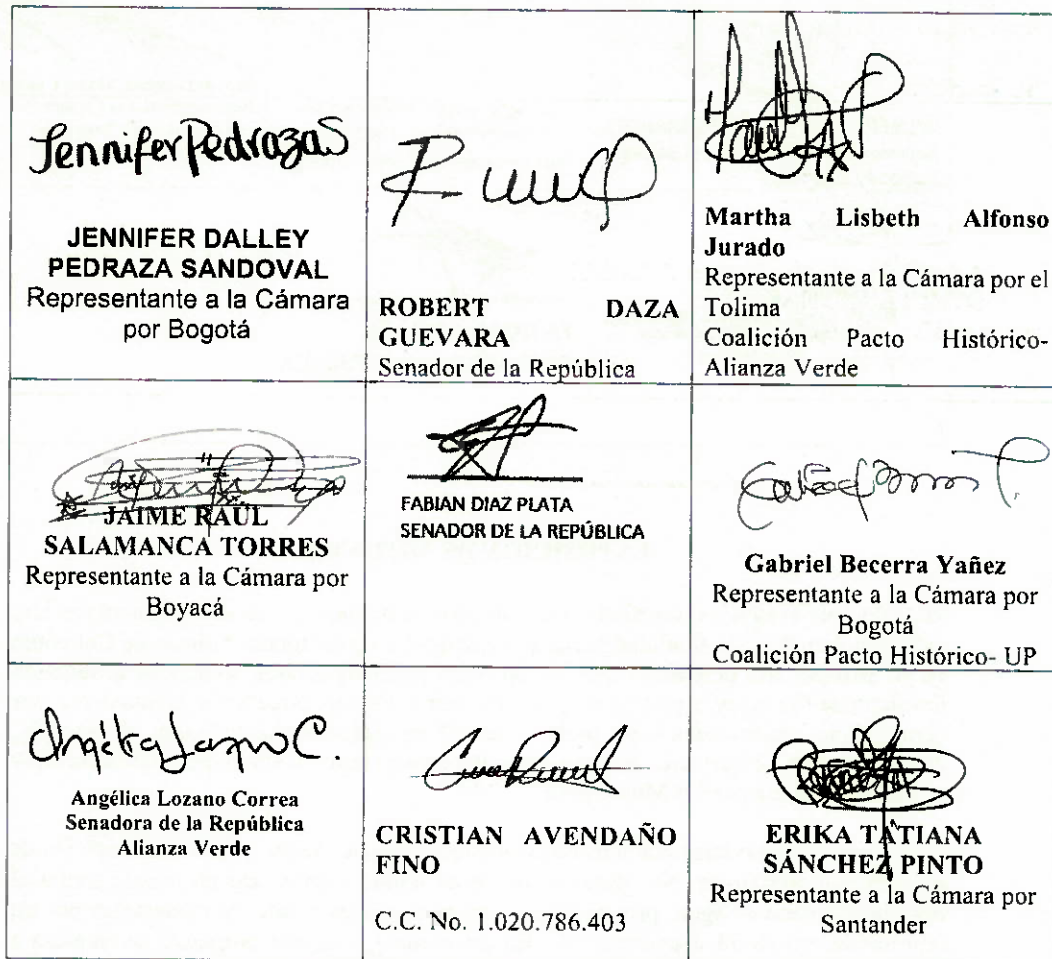 Jennifer Pedraza S
JENNIFER DALLEY
PEDRAZA SANDOVAL
Representante a la Cámara
por Bogotá
ROBERT DAZA
GUEVARA
Senador de la República
Martha Lisbeth Alfonso
Jurado
Representante a la Cámara por el
Tolima
Coalición Pacto Histórico-
Alianza Verde
JAIME RAÚL
SALAMANCA TORRES
Representante a la Cámara por
Boyacá
FABIAN DIAZ PLATA
SENADOR DE LA REPÚBLICA
Gabriel Becerra Yañez
Representante a la Cámara por
Bogotá
Coalición Pacto Histórico- UP
Angélica Lozano C.
Angélica Lozano Correa
Senadora de la República
Alianza Verde
CRISTIAN AVENDAÑO
FINO
C.C. No. 1.020.786.403
ERIKA TATIANA
SÁNCHEZ PINTO
Representante a la Cámara por
Santander